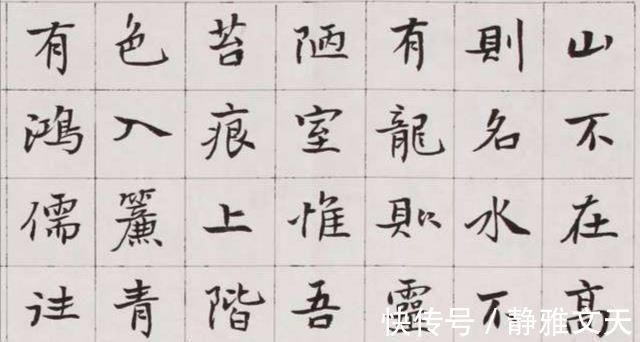 山不在高
則名水不
有龍則靈
陋室惟吾
苔痕上階
色入簾青
有鴻儒往
快传号／静雅文天